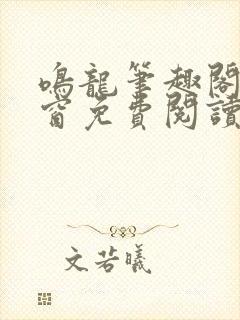 鳴龍筆趣閣
窗免費閱讀
文若曦